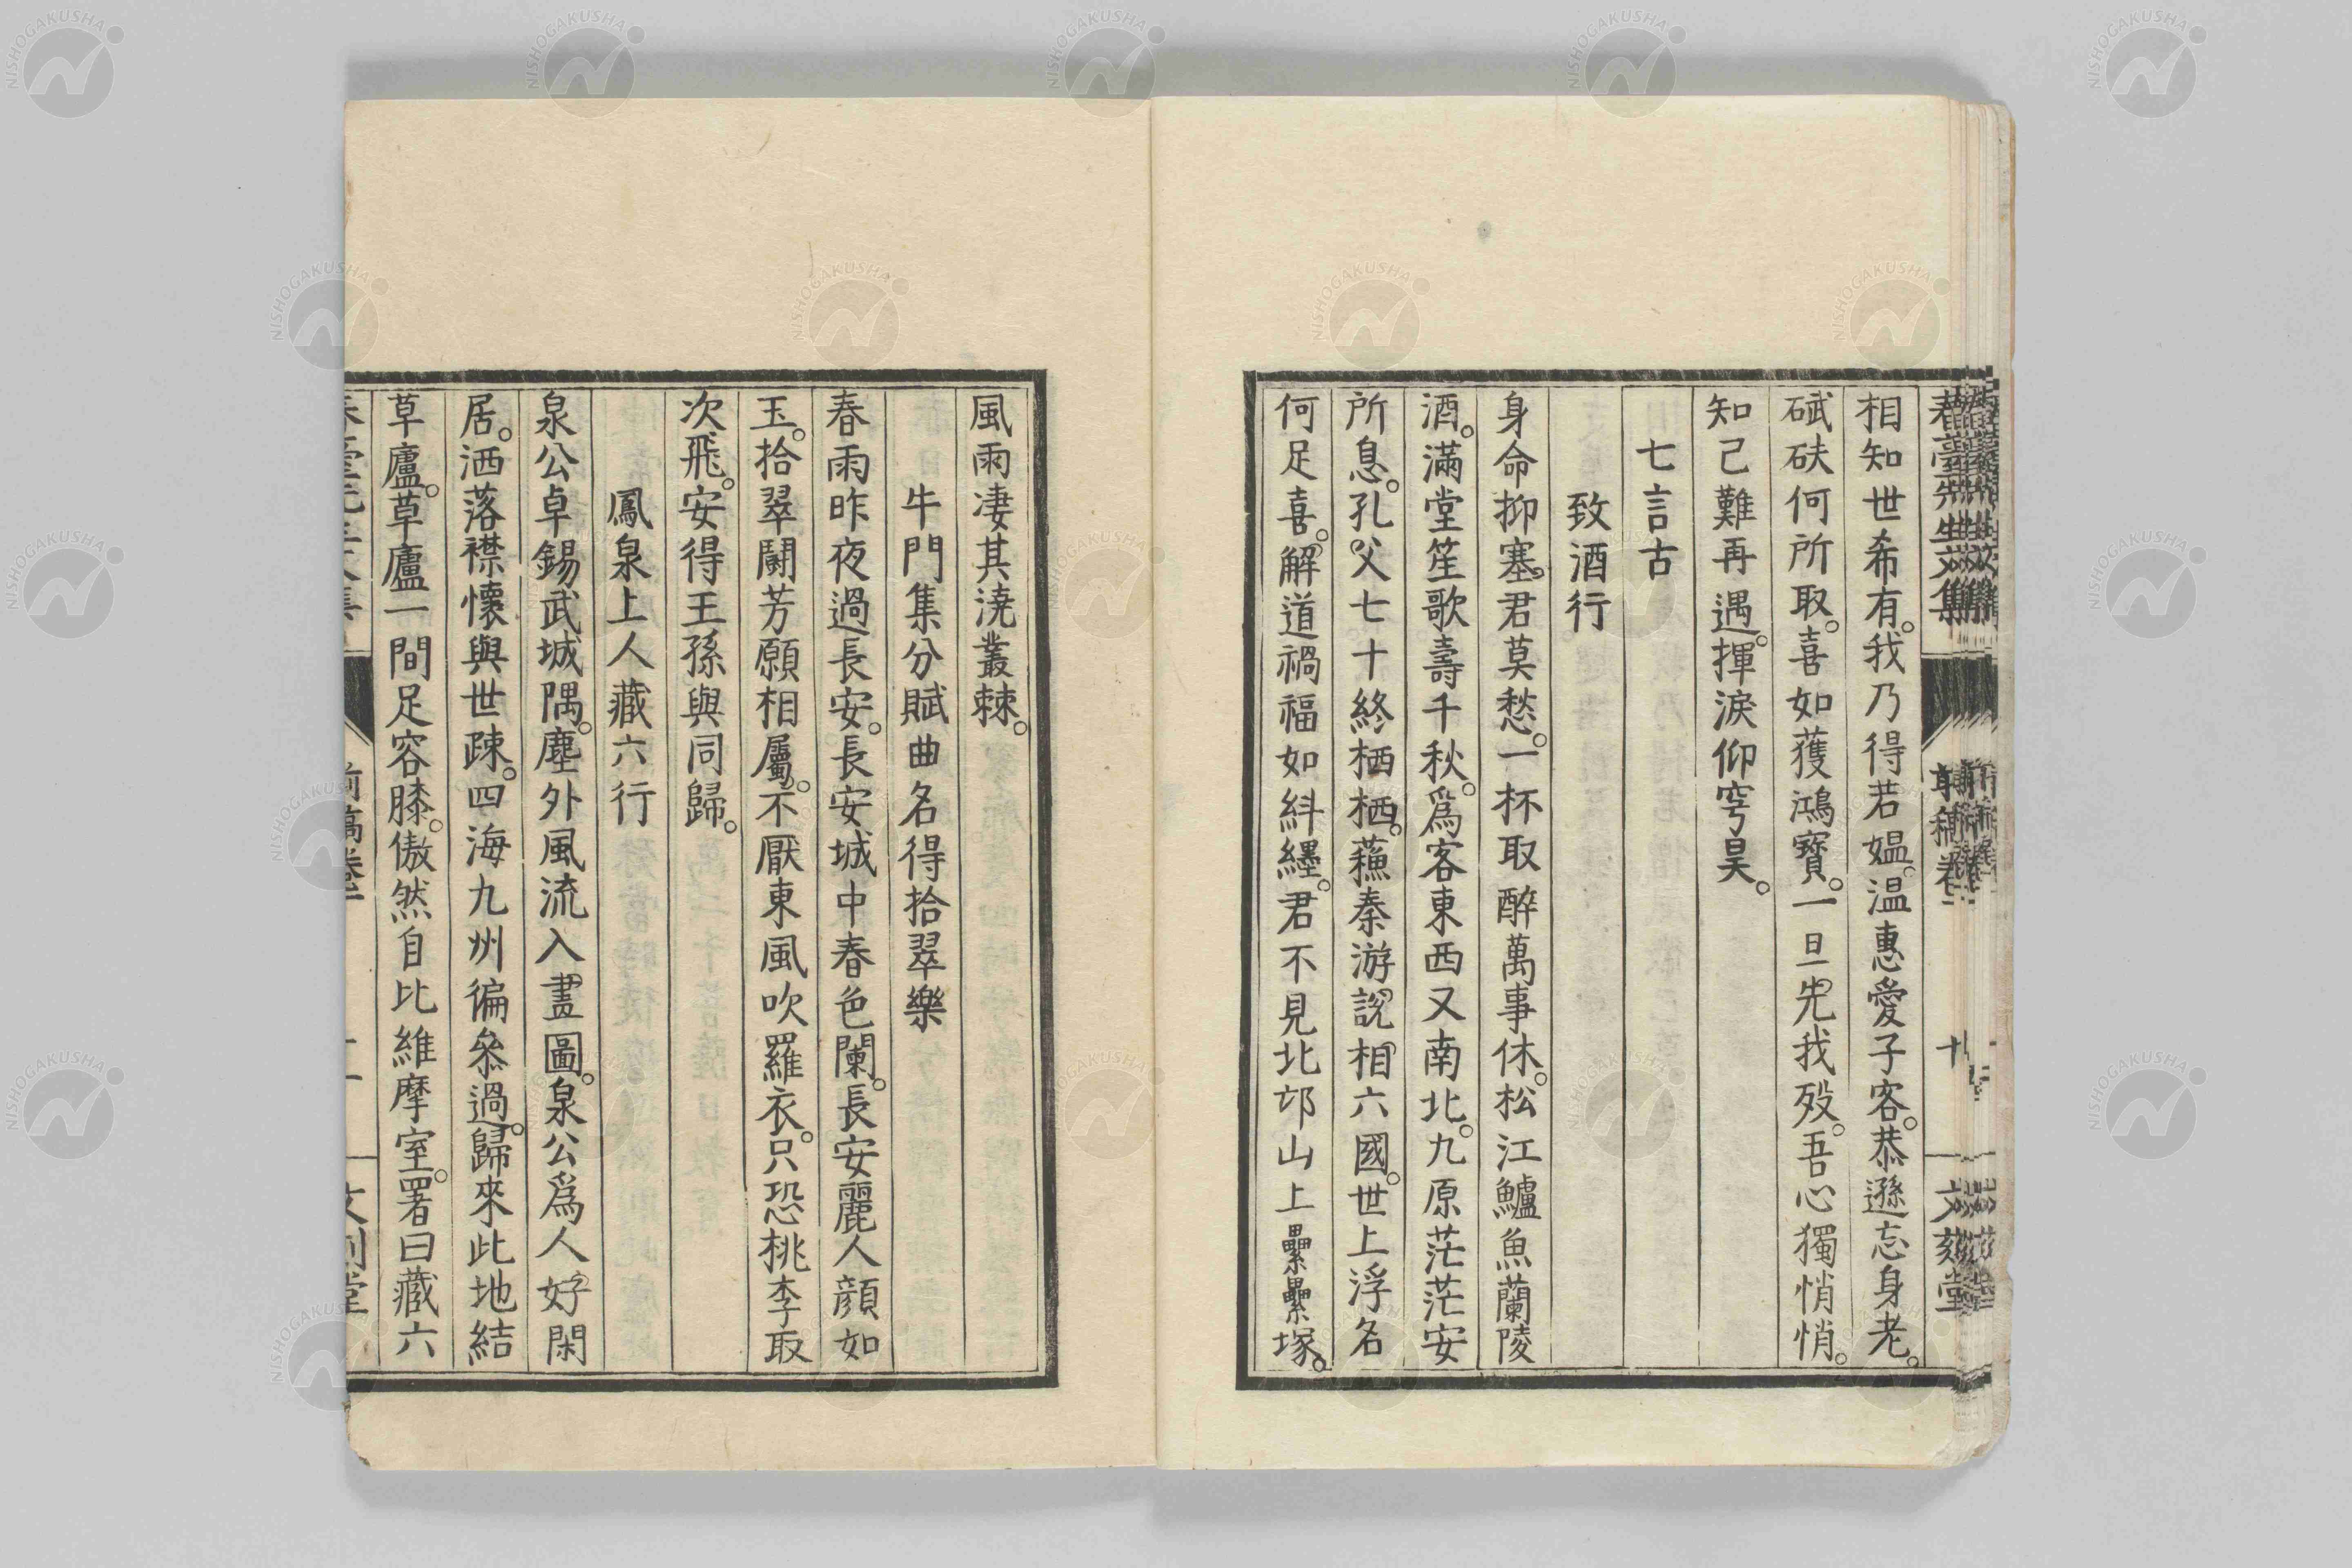 相知世希有。我乃得若媼。温惠愛子客。恭遜忘身老。
碔砆何所取。喜如獲鴻寶。一旦先我歿。吾心獨悄悄。
知己難再遇。揮淚仰穹昊。
七言古
致酒行
身命抑塞君莫愁。一杯取醉萬事休。松江鱸魚蘭陵
酒。滿堂笙歌壽千秋。爲客東西又南北。九原茫茫安
所息。孔父七十終栖栖。蘓秦游說相六國。世上浮名
何足喜。解道禍福如糾纆。君不見北邙山上纍纍塚。
風雨凄其澆叢棘。
牛門集分賦曲名得拾翠樂
春雨昨夜過長安。長安城中春色闌。長安麗人顔如
玉。拾翠鬭芳願相屬。不厭東風吹羅衣。只恐桃李取
次飛。安得王孫與同歸。
鳳泉上人藏六行
泉公卓錫武城隅。塵外風流入畫圖。泉公爲人好閑
居。洒落襟懷與世疎。四海九州徧叅過。歸來此地結
草廬。草廬一間足容膝。傲然自比維摩室。署曰藏六
NISHOGAKUSHA